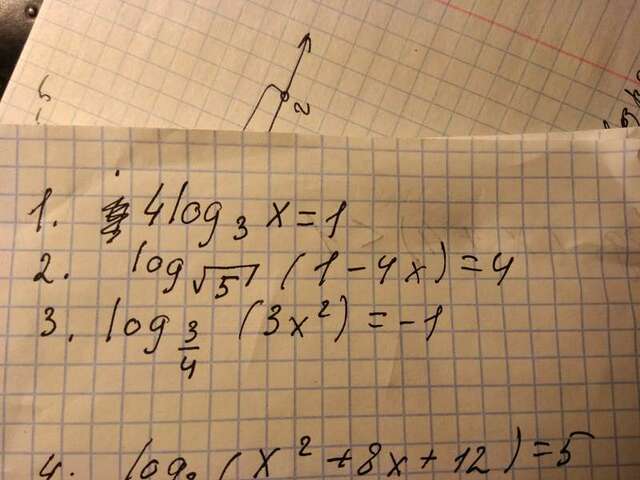 2
1. 4log₃ x = 1
2. log_√5 (1 - 4x) = 4
3. log_3/4 (3x²) = -1
4. log (x² + 8x + 12) = 5